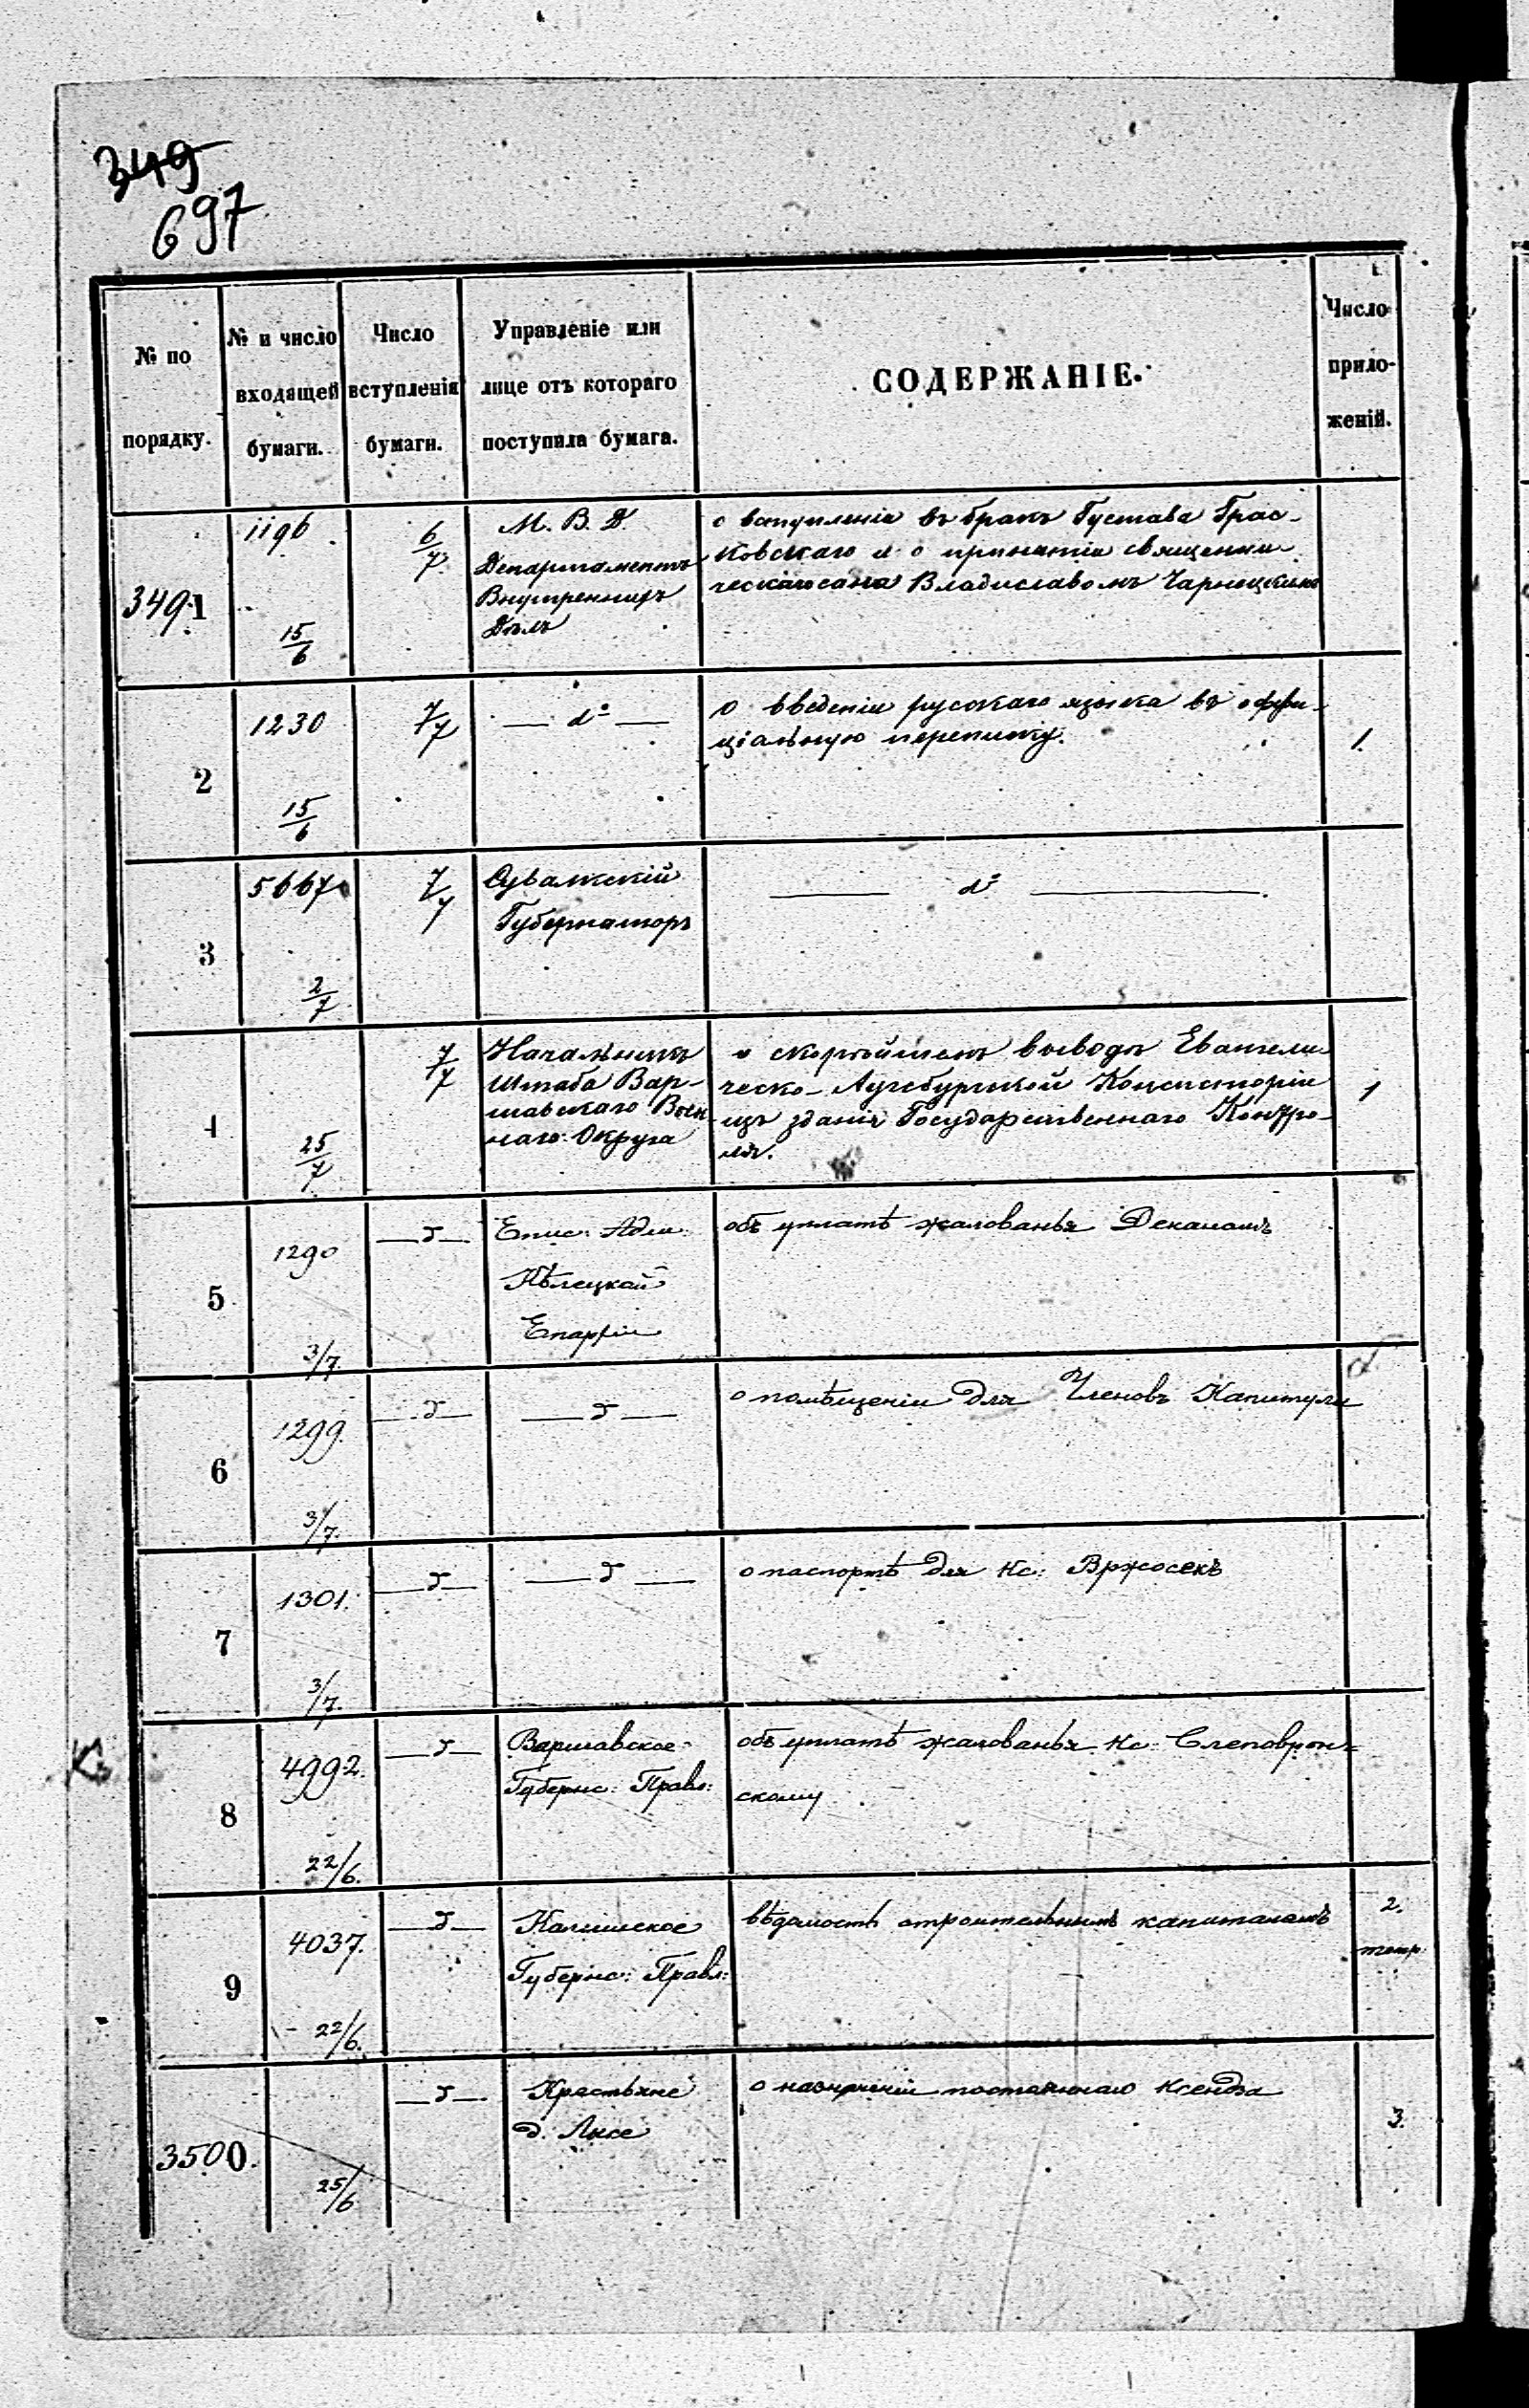 349
697
№ по порядку.
№ и число входящей бумаги.
Число вступленія бумаги.
Управленіе или лице отъ котораго поступила бумага.
СОДЕРЖАНІЕ.
Число приложеній.
3491
1196
15/6
6/7
М. В. Д.
Департаментъ
Внутреннихъ
Дѣлъ
о вступленіи въ бракъ Густава Грас-
ковскаго и о принятіи священни-
ческаго сана Владиславомъ Чарнецкимъ
2
1230
15/6
7/7
— d° —
О введеніи русскаго языка въ оффи-
ціальную переписку.
1.
3
5667
2/7
7/7
Сувалкскій
Губернаторъ
— d° —
4
25/7
7/7
Начальникъ
Штаба Вар-
шавскаго Воен-
наго Округа
о скорѣйшемъ выводѣ Евангели-
ческо-Аугсбургской Консисторіи
изъ зданія Государственнаго Контро-
ля.
1
5
1290
3/7.
Епис: Адм:
Кѣлецкой
Епархіи
объ уплатѣ жалованья Деканамъ
6
1299.
3/7.
о помѣщеніи для Членовъ Капитулы
7
1301.
3/7.
о паспортѣ для Кс: Вржосекъ
8
4992.
22/6.
Варшавское
Губернс: Правл:
объ уплатѣ жалованья Кс: Слеповрон-
скому
9
4037.
22/6.
Калишское
Губернс: Правл:
вѣдомость строительнымъ капиталамъ
2.
тетр.
3500.
25/6
Крестьяне
д.
о назначеніи постояннаго Ксендза
3.